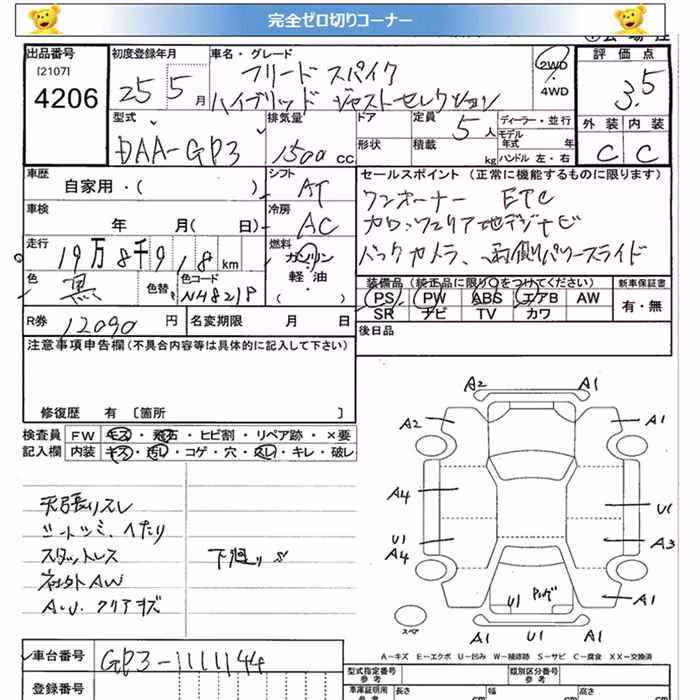 完全ゼロ切りコーナー
出品番号 初度登録年月 車名・グレード 2WD 評価点
[2107] フリード スパイク ・ 3.5
4206 25 5月 ハイブリッド ジャストセレクション 4WD
型式 排気量 ドア 定員 5人 ディーラー・並行 外装 内装
DAA-GP3 1500cc 形状 積載 kg モデル年式 年 C C
ハンドル 左・右
車歴 シフト セールスポイント (正常に機能するものに限ります)
自家用・( ) AT ワンオーナー ETC
車検 冷房 カロッツェリア地デジナビ
年 月( 日) AC バックカメラ、両側パワースライド
走行 燃料
19万8千918km ガソリン
色 色替 色コード 軽・油 装備品(純正品に限り○をつけてください) 新車保証書
黒 NH821P ( ・ ) PS PW ABS エアB AW 有・無
SR ナビ TV カワ
R券 12090円 名変期限 月 日 後日品
注意事項申告欄(不具合内容等は具体的に記入して下さい)
修復歴 有 〔箇所 〕
検査員 FW キズ・飛石・ヒビ割・リペア跡・×要
記入欄 内装 キズ・汚し・コゲ・穴・スレ・キレ・破レ
天張りスレ
シートシミ、ヘたり
スタットレス 下廻りS
社外AW
A.U.クリアキズ
A2 A1
A2 A1
A4 U1
U1 A3
A4
U1
A1
スペア A1 U1 A1
A-キズ E-エクボ U-凹み W-補修跡 S-サビ C-腐食 XX-交換済
車台番号 GP3-1111144 型式指定番号 参考 類別区分番号 参考
登録番号 車庫証明用 参考 長さ cm 幅 cm 高さ cm